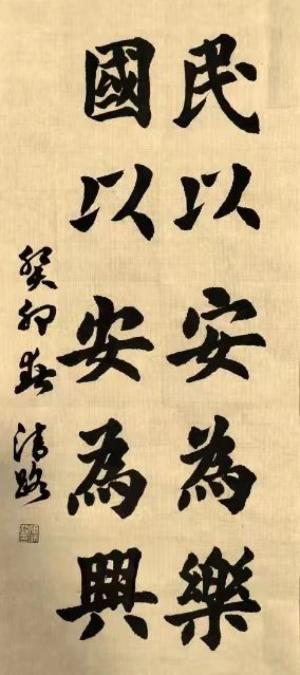 民以安為樂
國以安為興
癸卯春 清路